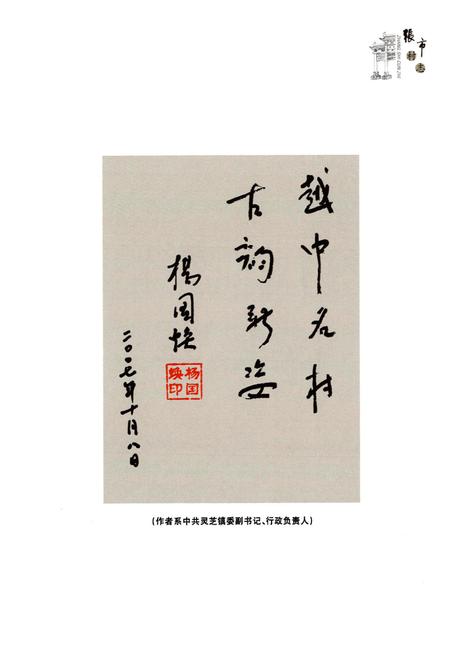 張市村志
ZHANG SHI CUN ZHI
越中名村
古韵新姿
杨国焕
杨国焕印
二〇〇七年十月八日
(作者系中共灵芝镇委副书记、行政负责人)